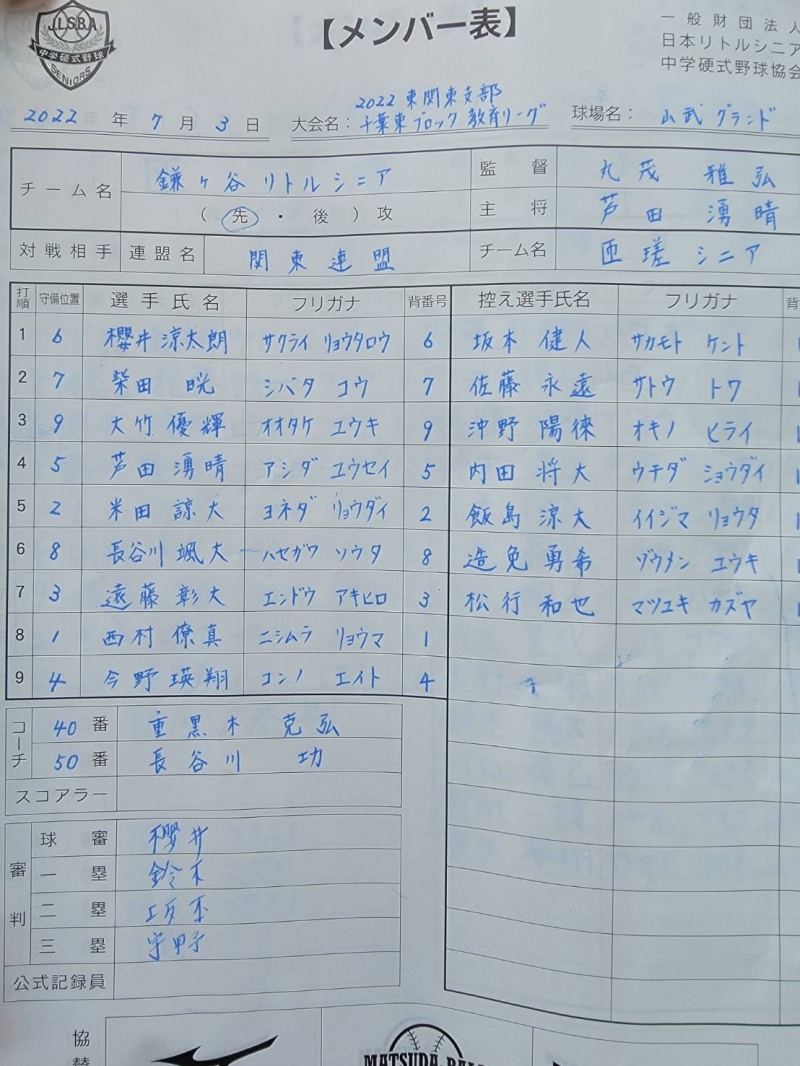 JLSBA
中学硬式野球
SENIORS
【メンバー表】
一般財団法人
日本リトルシニア
中学硬式野球協会
2022 年 7 月 3 日
大会名: 2022 東関東支部
千葉東ブロック 教育リーグ
球場名: 山武グランド
チーム名 鎌ヶ谷リトルシニア
( 先 ・ 後 ) 攻
監督 丸茂 雅弘
主将 芦田 湧晴
対戦相手 連盟名 関東連盟 チーム名 匝瑳シニア
打順 守備位置 選手氏名 フリガナ 背番号 控え選手氏名 フリガナ 背
1 6 櫻井 涼太朗 サクライ リョウタロウ 6 坂本 健人 サカモト ケント 1
2 7 柴田 晄 シバタ コウ 7 佐藤 永遠 サトウ トワ 1
3 9 大竹 優輝 オオタケ ユウキ 9 沖野 陽徠 オキノ ヒライ 1
4 5 芦田 湧晴 アシダ ユウセイ 5 内田 将大 ウチダ ショウダイ 1
5 2 米田 諒大 ヨネダ リョウダイ 2 飯島 涼大 イイジマ リョウタ 1
6 8 長谷川 颯大 ハセガワ ソウタ 8 造免 勇希 ゾウメン ユウキ
7 3 遠藤 彰大 エンドウ アキヒロ 3 松行 和也 マツユキ カズヤ 1
8 1 西村 僚真 ニシムラ リョウマ 1
9 4 今野 瑛翔 コンノ エイト 4
コーチ 40 番 重黒木 克弘
50 番 長谷川 功
スコアラー
審判
球審 櫻井
一塁 鈴木
二塁
三塁 宇野
公式記録員
協賛
MATSUDA BALL